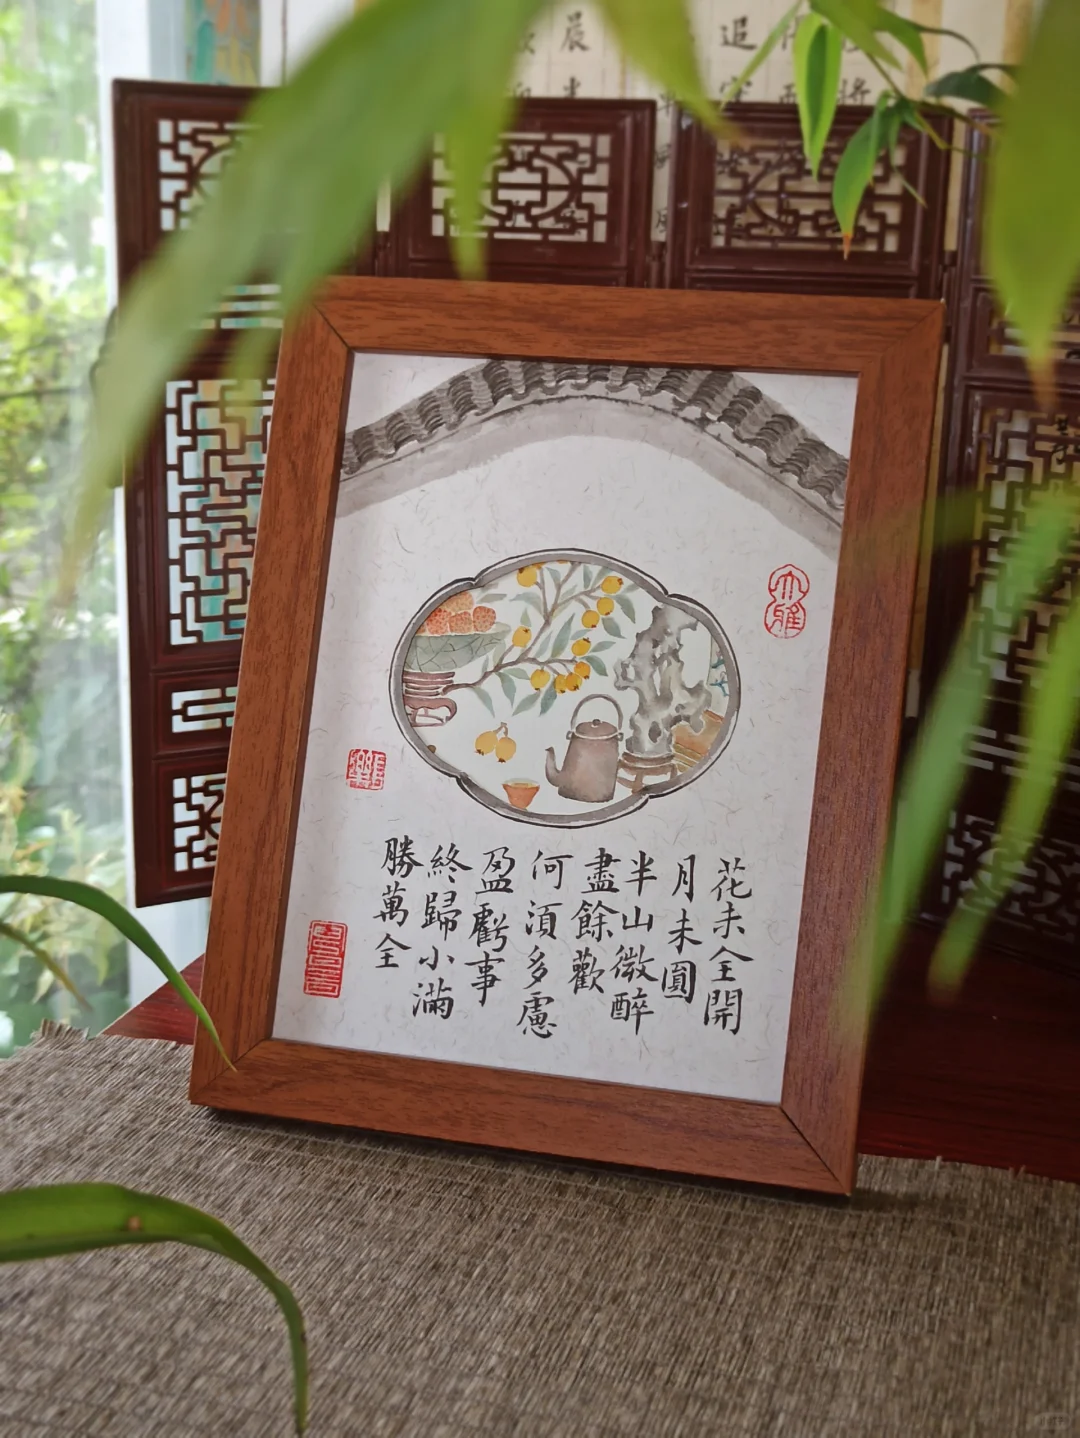 花未全開
月未圓
半山微醉
盡餘歡
何須多慮
盈虧事
終歸小滿
勝萬全
大雅
長樂